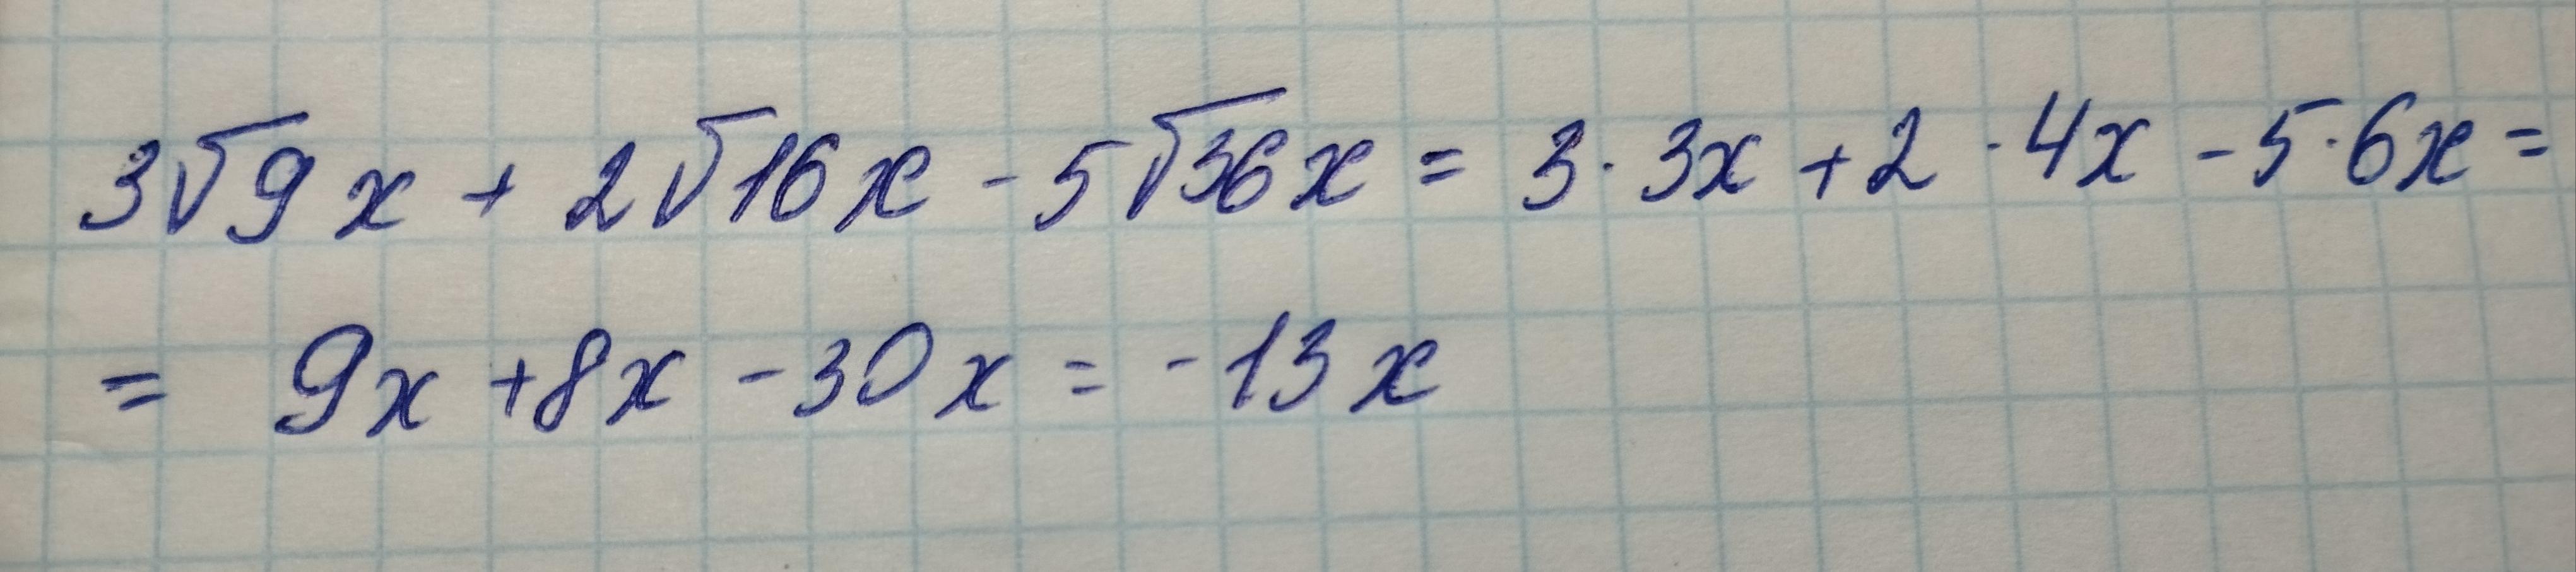 3√9 x + 2√16 x - 5√36 x = 3 · 3x + 2 · 4x - 5 · 6x =
= 9x + 8x - 30x = -13x